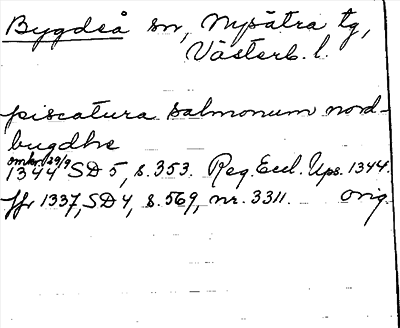 Bygdeå sn, Nysätra tg,
Västerb. l.
piscatura salmonum nord-
bugdhe
omkr. 29/9
1344 SD 5, s. 353. Reg. Eccl. Ups. 1344.
jfr 1337, SD 4, s. 569, nr. 3311. orig.